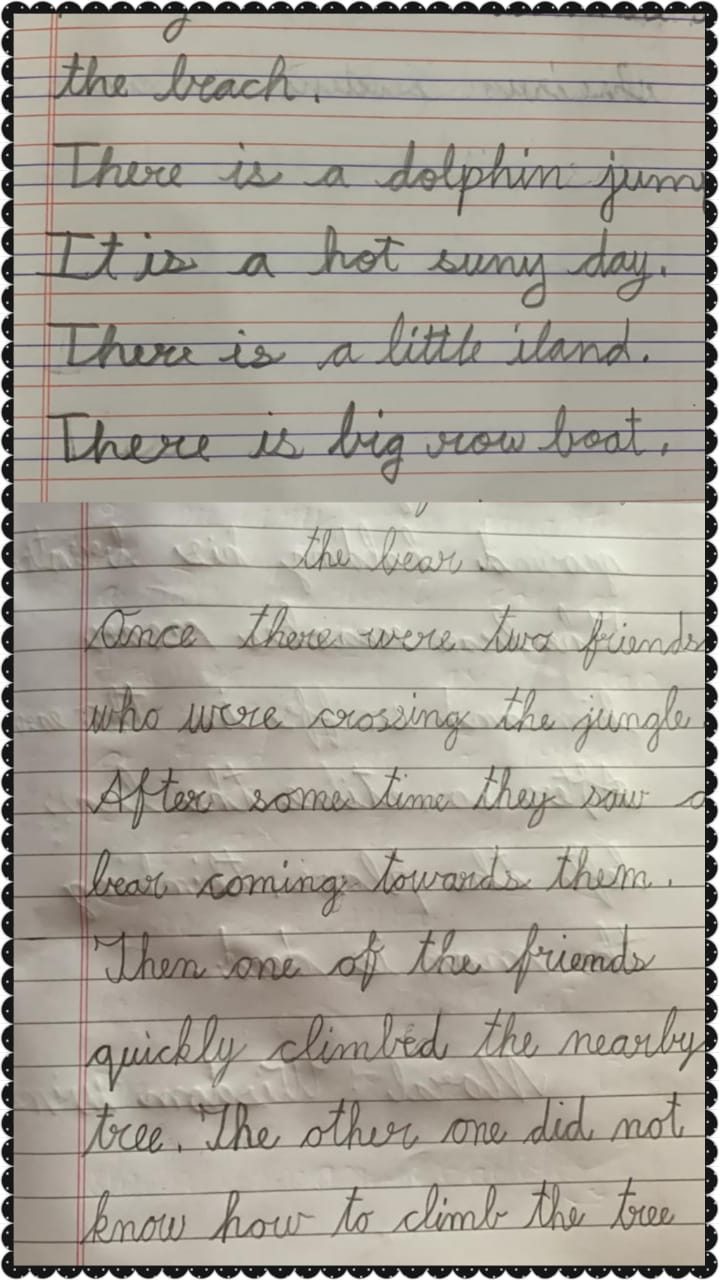 the beach.
There is a dolphin jum
It is a hot suny day.
There is a little iland.
There is big row boat.
the bear.
Once there were two friends
who were crossing the jungle
After some time they saw a
bear coming towards them.
Then one of the friends
quickly climbed the nearby
tree. The other one did not
know how to climb the tree